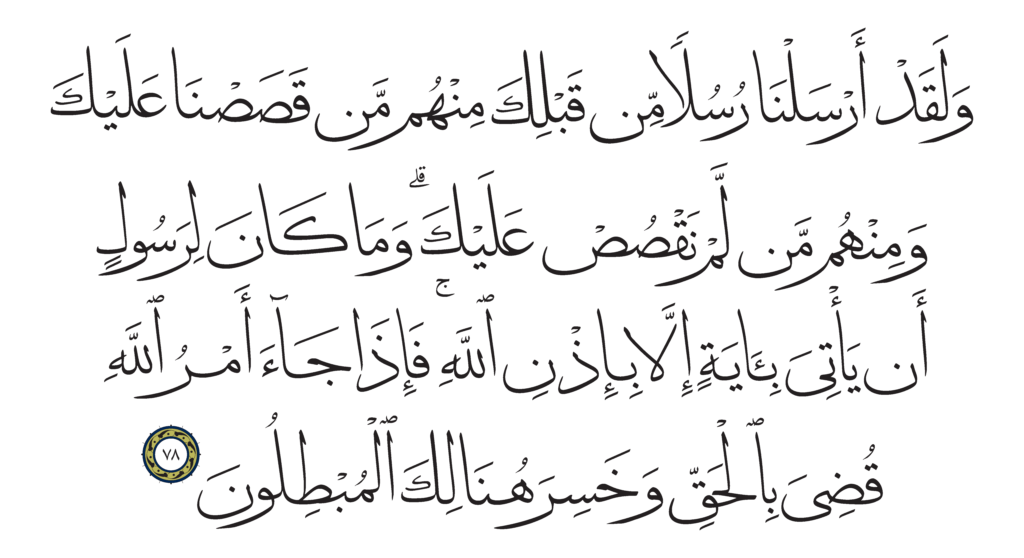 وَلَقَدْ أَرْسَلْنَا رُسُلًا مِّن قَبْلِكَ مِنْهُم مَّن قَصَصْنَا عَلَيْكَ
وَمِنْهُم مَّن لَّمْ نَقْصُصْ عَلَيْكَ ۗ وَمَا كَانَ لِرَسُولٍ
أَن يَأْتِىَ بِـَٔايَةٍ إِلَّا بِإِذْنِ ٱللَّهِ ۚ فَإِذَا جَآءَ أَمْرُ ٱللَّهِ
قُضِىَ بِٱلْحَقِّ وَخَسِرَ هُنَالِكَ ٱلْمُبْطِلُونَ ٧٨